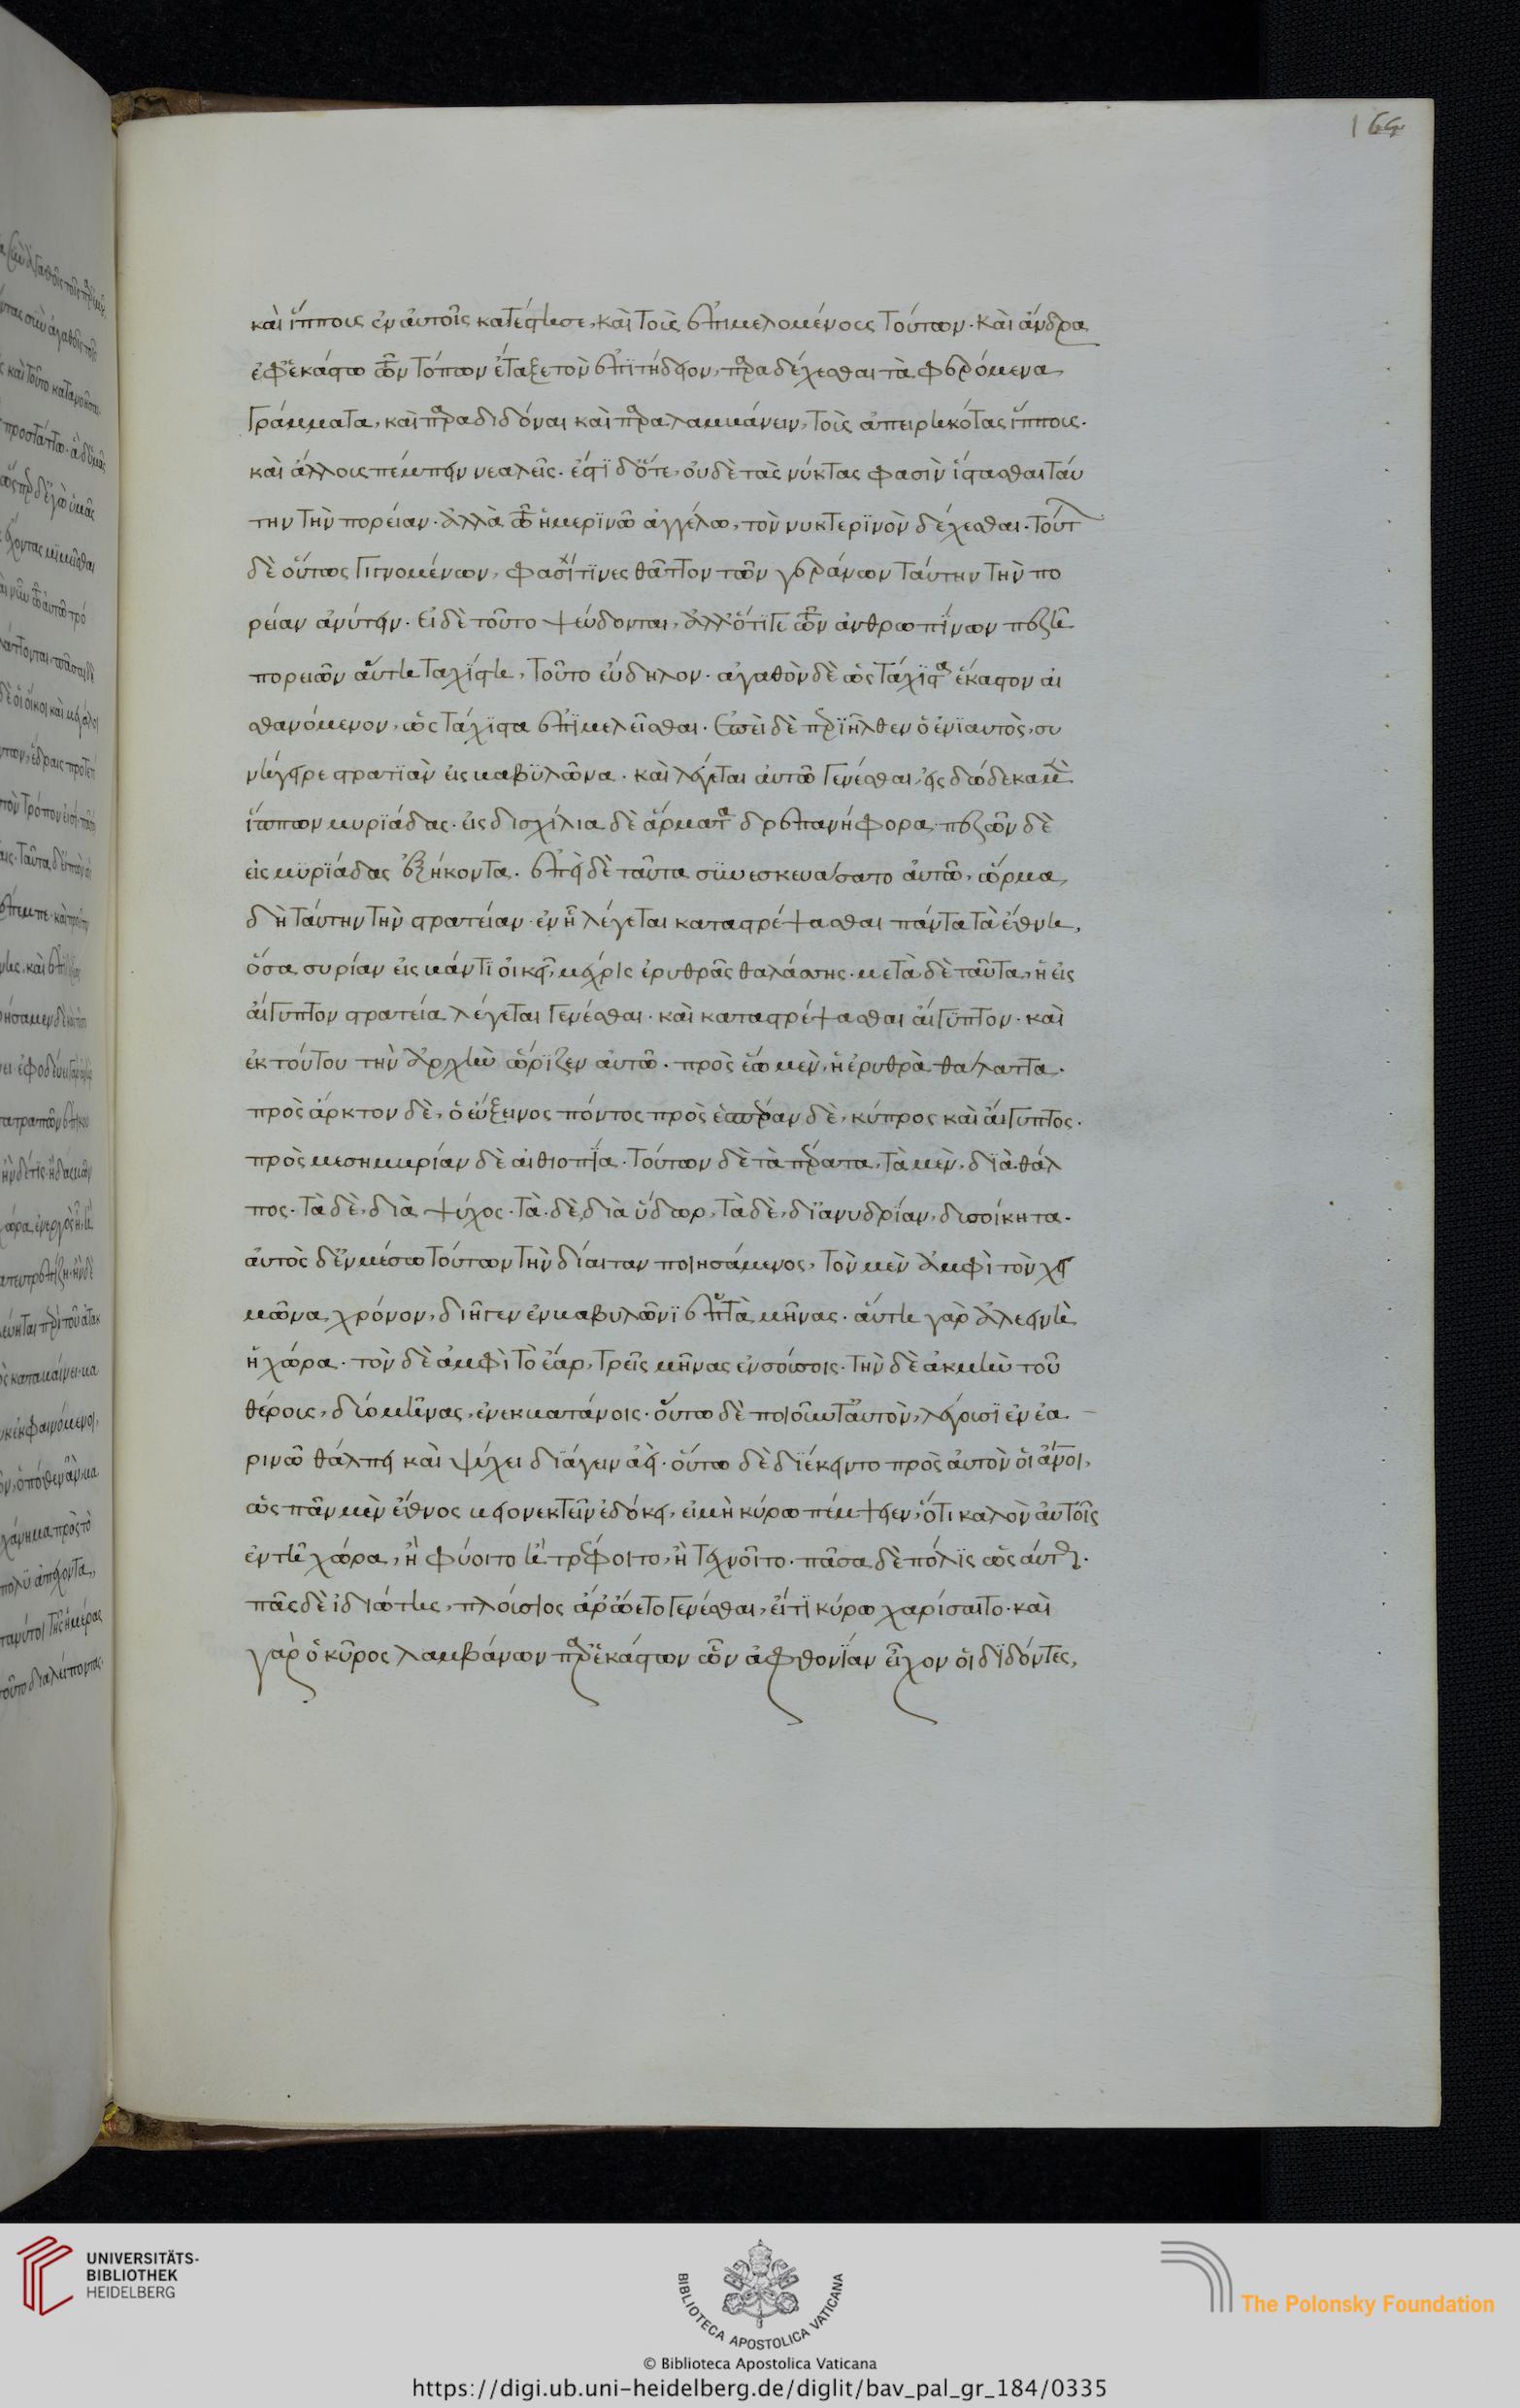 164
καὶ ἵππους ἐν αὐτοῖς κατέστησε, καὶ τοὺς ἐπιμελομένους τούτων. καὶ ἄνδρα
ἐφ' ἑκάστω τῶν τόπων ἔταξε τὸν ἐπιτήδειον, παραδέχεσθαι τὰ φερόμενα
γράμματα, καὶ παραδιδόναι καὶ παραλαμβάνειν, τοὺς ἀπειρηκότας ἵππους.
καὶ ἄλλους πέμπειν νεαλεῖς. ἔστι δ' ὅτε, οὐδὲ τὰς νύκτας φασὶν ἵστασθαι ταύ
την τὴν πορείαν. ἀλλὰ τῶ ἡμερινῶ ἀγγέλω, τὸν νυκτερινὸν δέχεσθαι. τούτ
δὲ οὕτως γιγνομένων, φασί τινες θᾶττον τῶν γεράνων ταύτην τὴν πο
ρείαν ἀνύτειν. εἰ δὲ τοῦτο ψεύδονται, ἀλλ' ὅτι γε τῶν ἀνθρωπίνων πεζῆ
πορειῶν αὕτη ταχίστη, τοῦτο εὔδηλον. ἀγαθὸν δὲ ὡς τάχιστα ἕκαστον αἰ
σθανόμενον, ὡς τάχιστα ἐπιμελεῖσθαι. ἐπεὶ δὲ περιῆλθεν ὁ ἐνιαυτὸς, συ
νήγειρε στρατιὰν εἰς βαβυλῶνα. καὶ λέγεται αὐτῶ γενέσθαι, εἰς δώδεκα μὲν
ἵππων μυριάδας. εἰς δισχίλια δὲ ἅρματα δρεπανήφορα. πεζῶν δὲ
εἰς μυριάδας ἑξήκοντα. ἐπεὶ δὲ ταῦτα συνεσκευάσατο αὐτῶ, ὥρμα
δὴ ταύτην τὴν στρατείαν. ἐν ᾗ λέγεται καταστρέψασθαι πάντα τὰ ἔθνη,
ὅσα συρίαν εἰσβάντι οἰκεῖ, μέχρις ἐρυθρᾶς θαλάσσης. μετὰ δὲ ταῦτα, ἡ εἰς
αἴγυπτον στρατεία λέγεται γενέσθαι. καὶ καταστρέψασθαι αἴγυπτον. καὶ
ἐκ τούτου τὴν ἀρχὴν ὥριζεν αὐτῶ. πρὸς ἕω μὲν, ἡ ἐρυθρὰ θάλαττα.
πρὸς ἄρκτον δὲ, ὁ εὔξεινος πόντος πρὸς ἑσπέραν δὲ, κύπρος καὶ αἴγυπτος.
πρὸς μεσημβρίαν δὲ αἰθιοπία. τούτων δὲ τὰ πέρατα, τὰ μὲν, διὰ θάλ
πος. τὰ δὲ, διὰ ψύχος. τὰ δὲ, διὰ ὕδωρ, τὰ δὲ, δι' ἀνυδρίαν, δυσοίκητα.
αὐτὸς δ' ἐν μέσω τούτων τὴν δίαιταν ποιησάμενος, τὸν μὲν ἀμφὶ τὸν χει
μῶνα χρόνον, διῆγεν ἐν βαβυλῶνι ἑπτὰ μῆνας. αὕτη γὰρ ἀλεεινὴ
ἡ χώρα. τὸν δὲ ἀμφὶ τὸ ἔαρ, τρεῖς μῆνας ἐν σούσοις. τὴν δὲ ἀκμὴν τοῦ
θέρους, δύο μῆνας, ἐν ἐκβατάνοις. οὕτω δὲ ποιοῦντ' αὐτὸν, λέγουσι ἐν ἐα
ρινῶ θάλπει καὶ ψύχει διάγειν ἀεὶ. οὕτω δὲ διέκειντο πρὸς αὐτὸν οἱ ἄνοι,
ὡς πᾶν μὲν ἔθνος μειονεκτεῖν ἐδόκει, εἰ μὴ κύρω πέμψειεν, ὅτι καλὸν αὐτοῖς
ἐν τῆ χώρα, ἢ φύοιτο ἢ τρέφοιτο, ἢ τεχνοῖτο. πᾶσα δὲ πόλις ὡσαύτως.
πᾶς δὲ ἰδιώτης, πλούσιος ἂν ᾤετο γενέσθαι, εἴ τι κύρω χαρίσαιτο. καὶ
γὰρ ὁ κῦρος λαμβάνων παρ' ἑκάστων ὧν ἀφθονίαν εἶχον οἱ διδόντες,
UNIVERSITÄTS-
BIBLIOTHEK
HEIDELBERG
BIBLIOTECA APOSTOLICA VATICANA
The Polonsky Foundation
© Biblioteca Apostolica Vaticana
https://digi.ub.uni-heidelberg.de/diglit/bav_pal_gr_184/0335